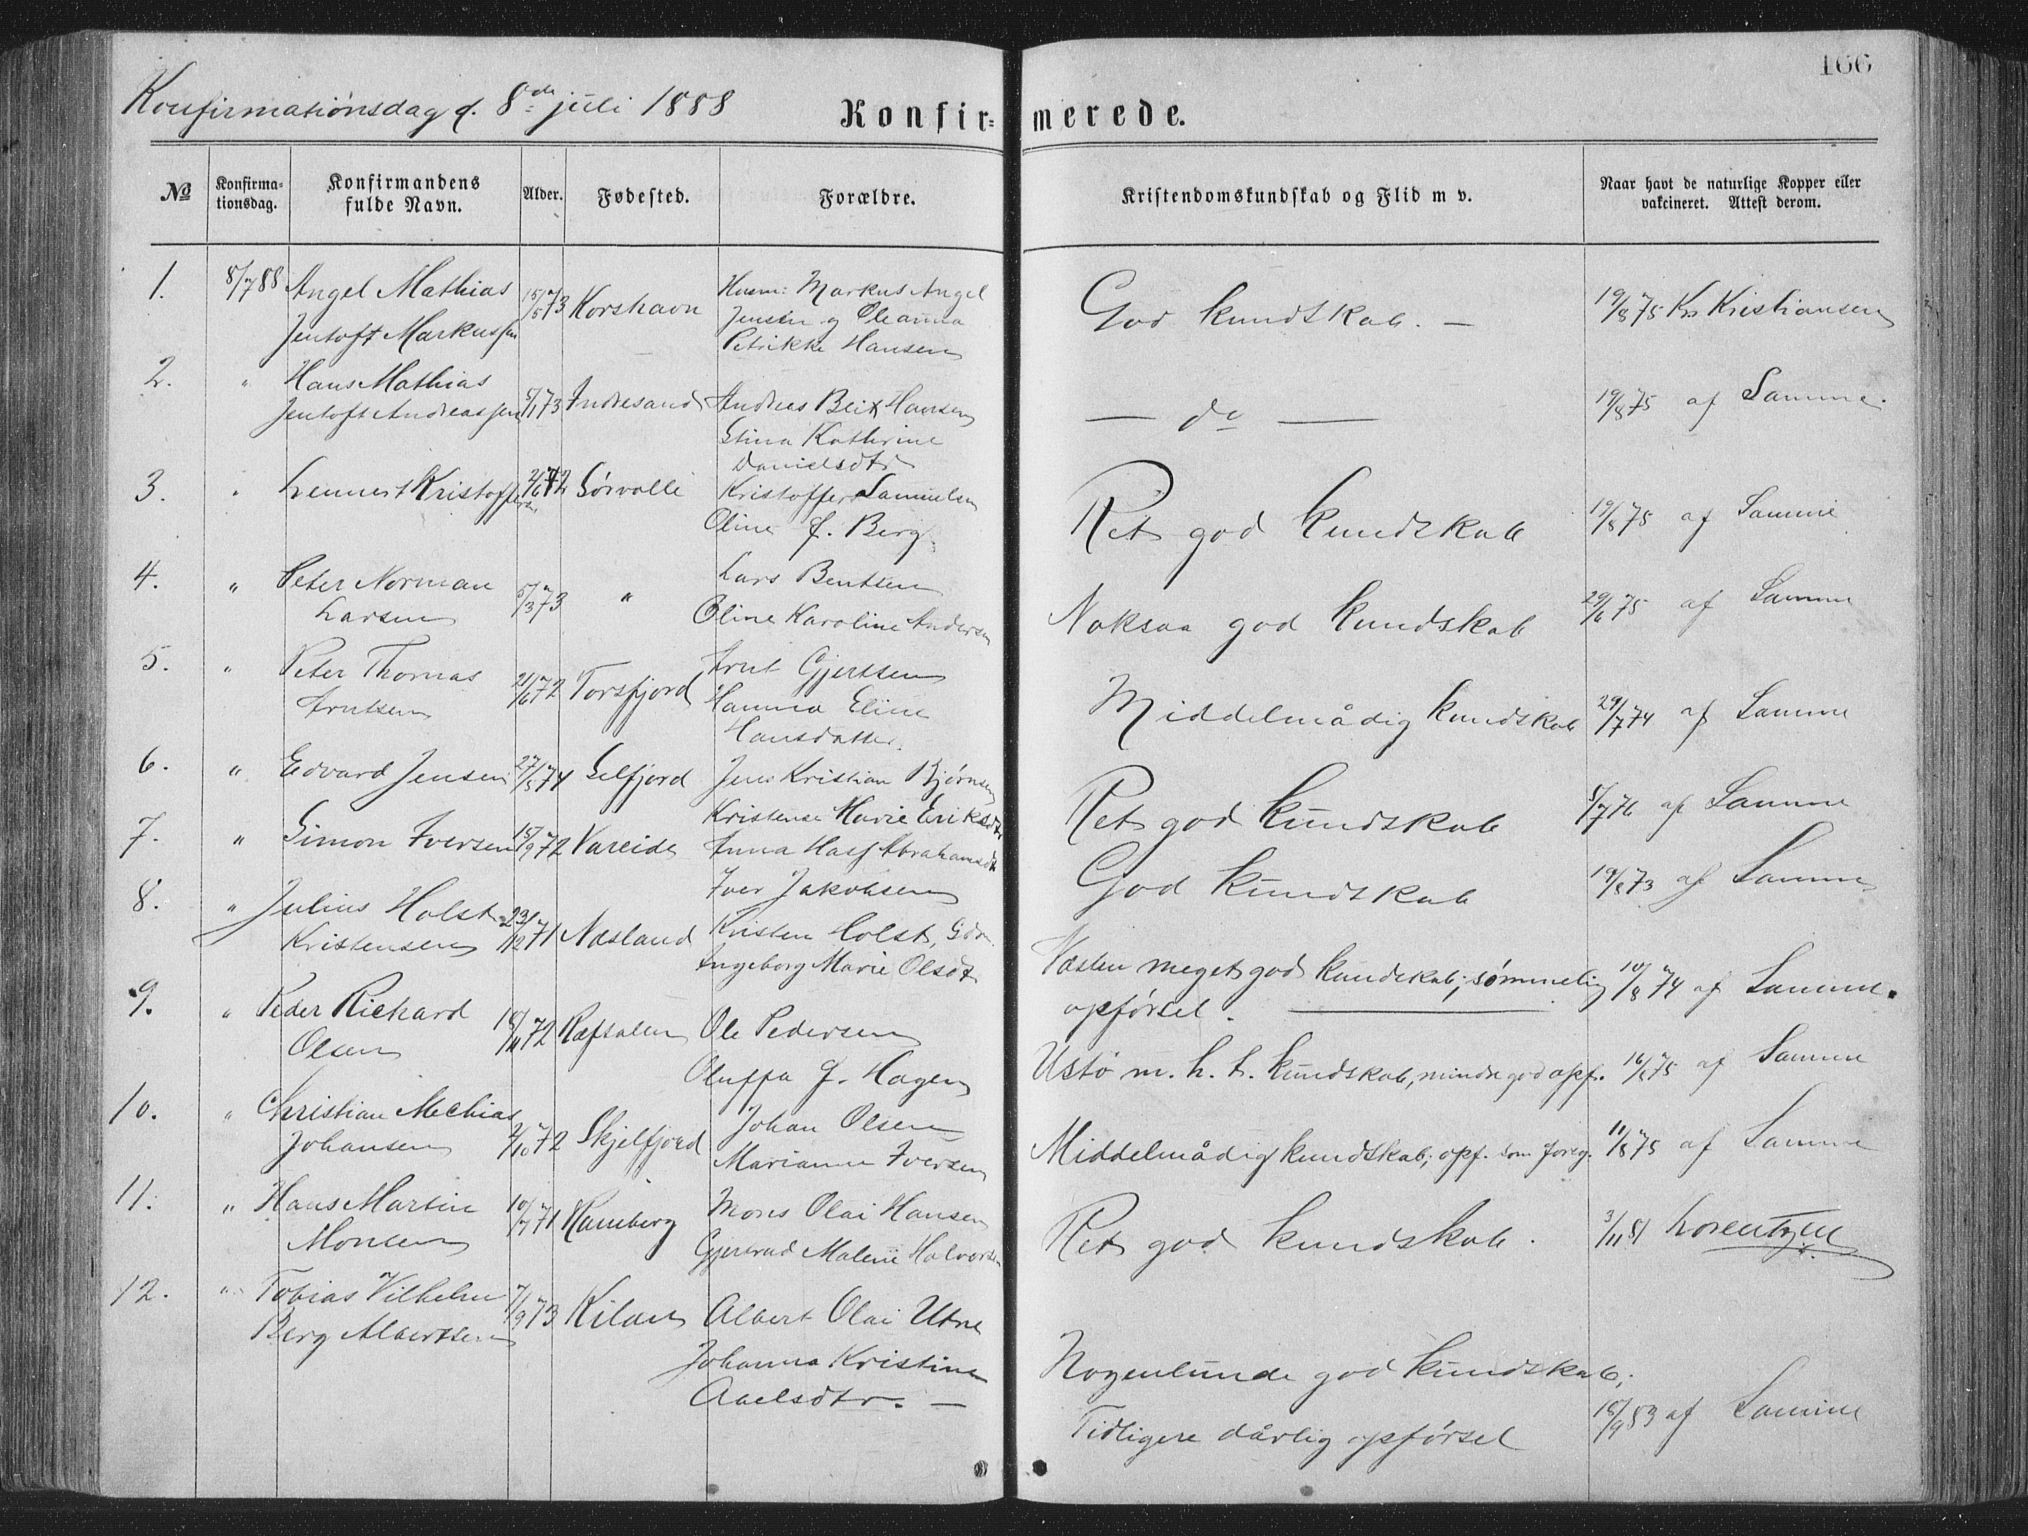 166
Konfirmationsdag d. 8de juli 1888
Konfirmerede.
No
Konfirmationsdag.
Konfirmandens fulde Navn.
Alder.
Fødested.
Forældre.
Kristendomskundskab og Flid m v.
Naar havt de naturlige Kopper eller vakcineret. Attest derom.
1. 8/7 88 Angel Mathias 15/5 73 Korshavn Husm: Markus Angel God kundskab. — 19/8 75 Kr Kristiansen
Jentoft Markussen Jensen og Oleanna
Petrikke Hansen
2. " Hans Mathias
Jentoft Andreassen 5/1 73 Andresand Andreas Beit Hansen — do — 19/8 75 af Samme.
Stina Kathrine
Danielsdtr
3. " Lennert Kristoffersen 2/6 72 Sørvalle Kristoffer Samuelsen Ret god kundskab 19/8 75 af Samme
Oline f. Berg
4. " Peter Norman Lars Bentsen
Larsen 5/3 73 " Oline Karoline Andersen Noksaa god kundskab 29/6 75 af Samme
5. " Peter Thomas Arnt Gjertsen
Arntsen 21/6 72 Torsfjord Hanna Eline Middelmådig kundskab 29/7 74 af Samme
Hansdatter.
6. " Edvard Jensen 27/5 74 Selfjord Jens Kristian Bjørnsen Ret god kundskab 5/7 76 af Samme
Kristense Marie Eriksdtr
7. " Simon Iversen 15/9 72 Vareide Anna Abrahamsdtr God kundskab 19/8 73 af Samme
Iver Jakobsen
8. " Julius Holst Kristen Holst,
Kristensen 23/12 71 Næsland Ingeborg Marie Olsdt Næsten meget god kundskab; sømmelig 10/8 74 af Samme.
opførsel. —
9. " Peder Richard
Olsen 18/11 72 Ræfsalen Ole Pedersen Ustø m. h. t. kundskab, mindre god opf. 16/8 75 af Samme
Oluffa f. Hagen
10. " Christian Mechias Johan Olsen
Johansen 2/10 72 Skjelfjord Marianne Iversen Middelmådig kundskab; opf. som foreg. 11/8 75 af Samme
11. " Hans Martin 10/7 71 Ramberg Mons Olai Hansen Ret god kundskab. 3/11 81 Lorentzen
Monsen Gjertrud Malene Halvorsen
12. " Tobias Vilhelm 7/9 73 Kilan Albert Olai Utne
Berg Albertsen Johanna Kristine Nogenlunde god kundskab;
Axelsdtr. — Tidligere dårlig opførsel 18/9 83 af Samme